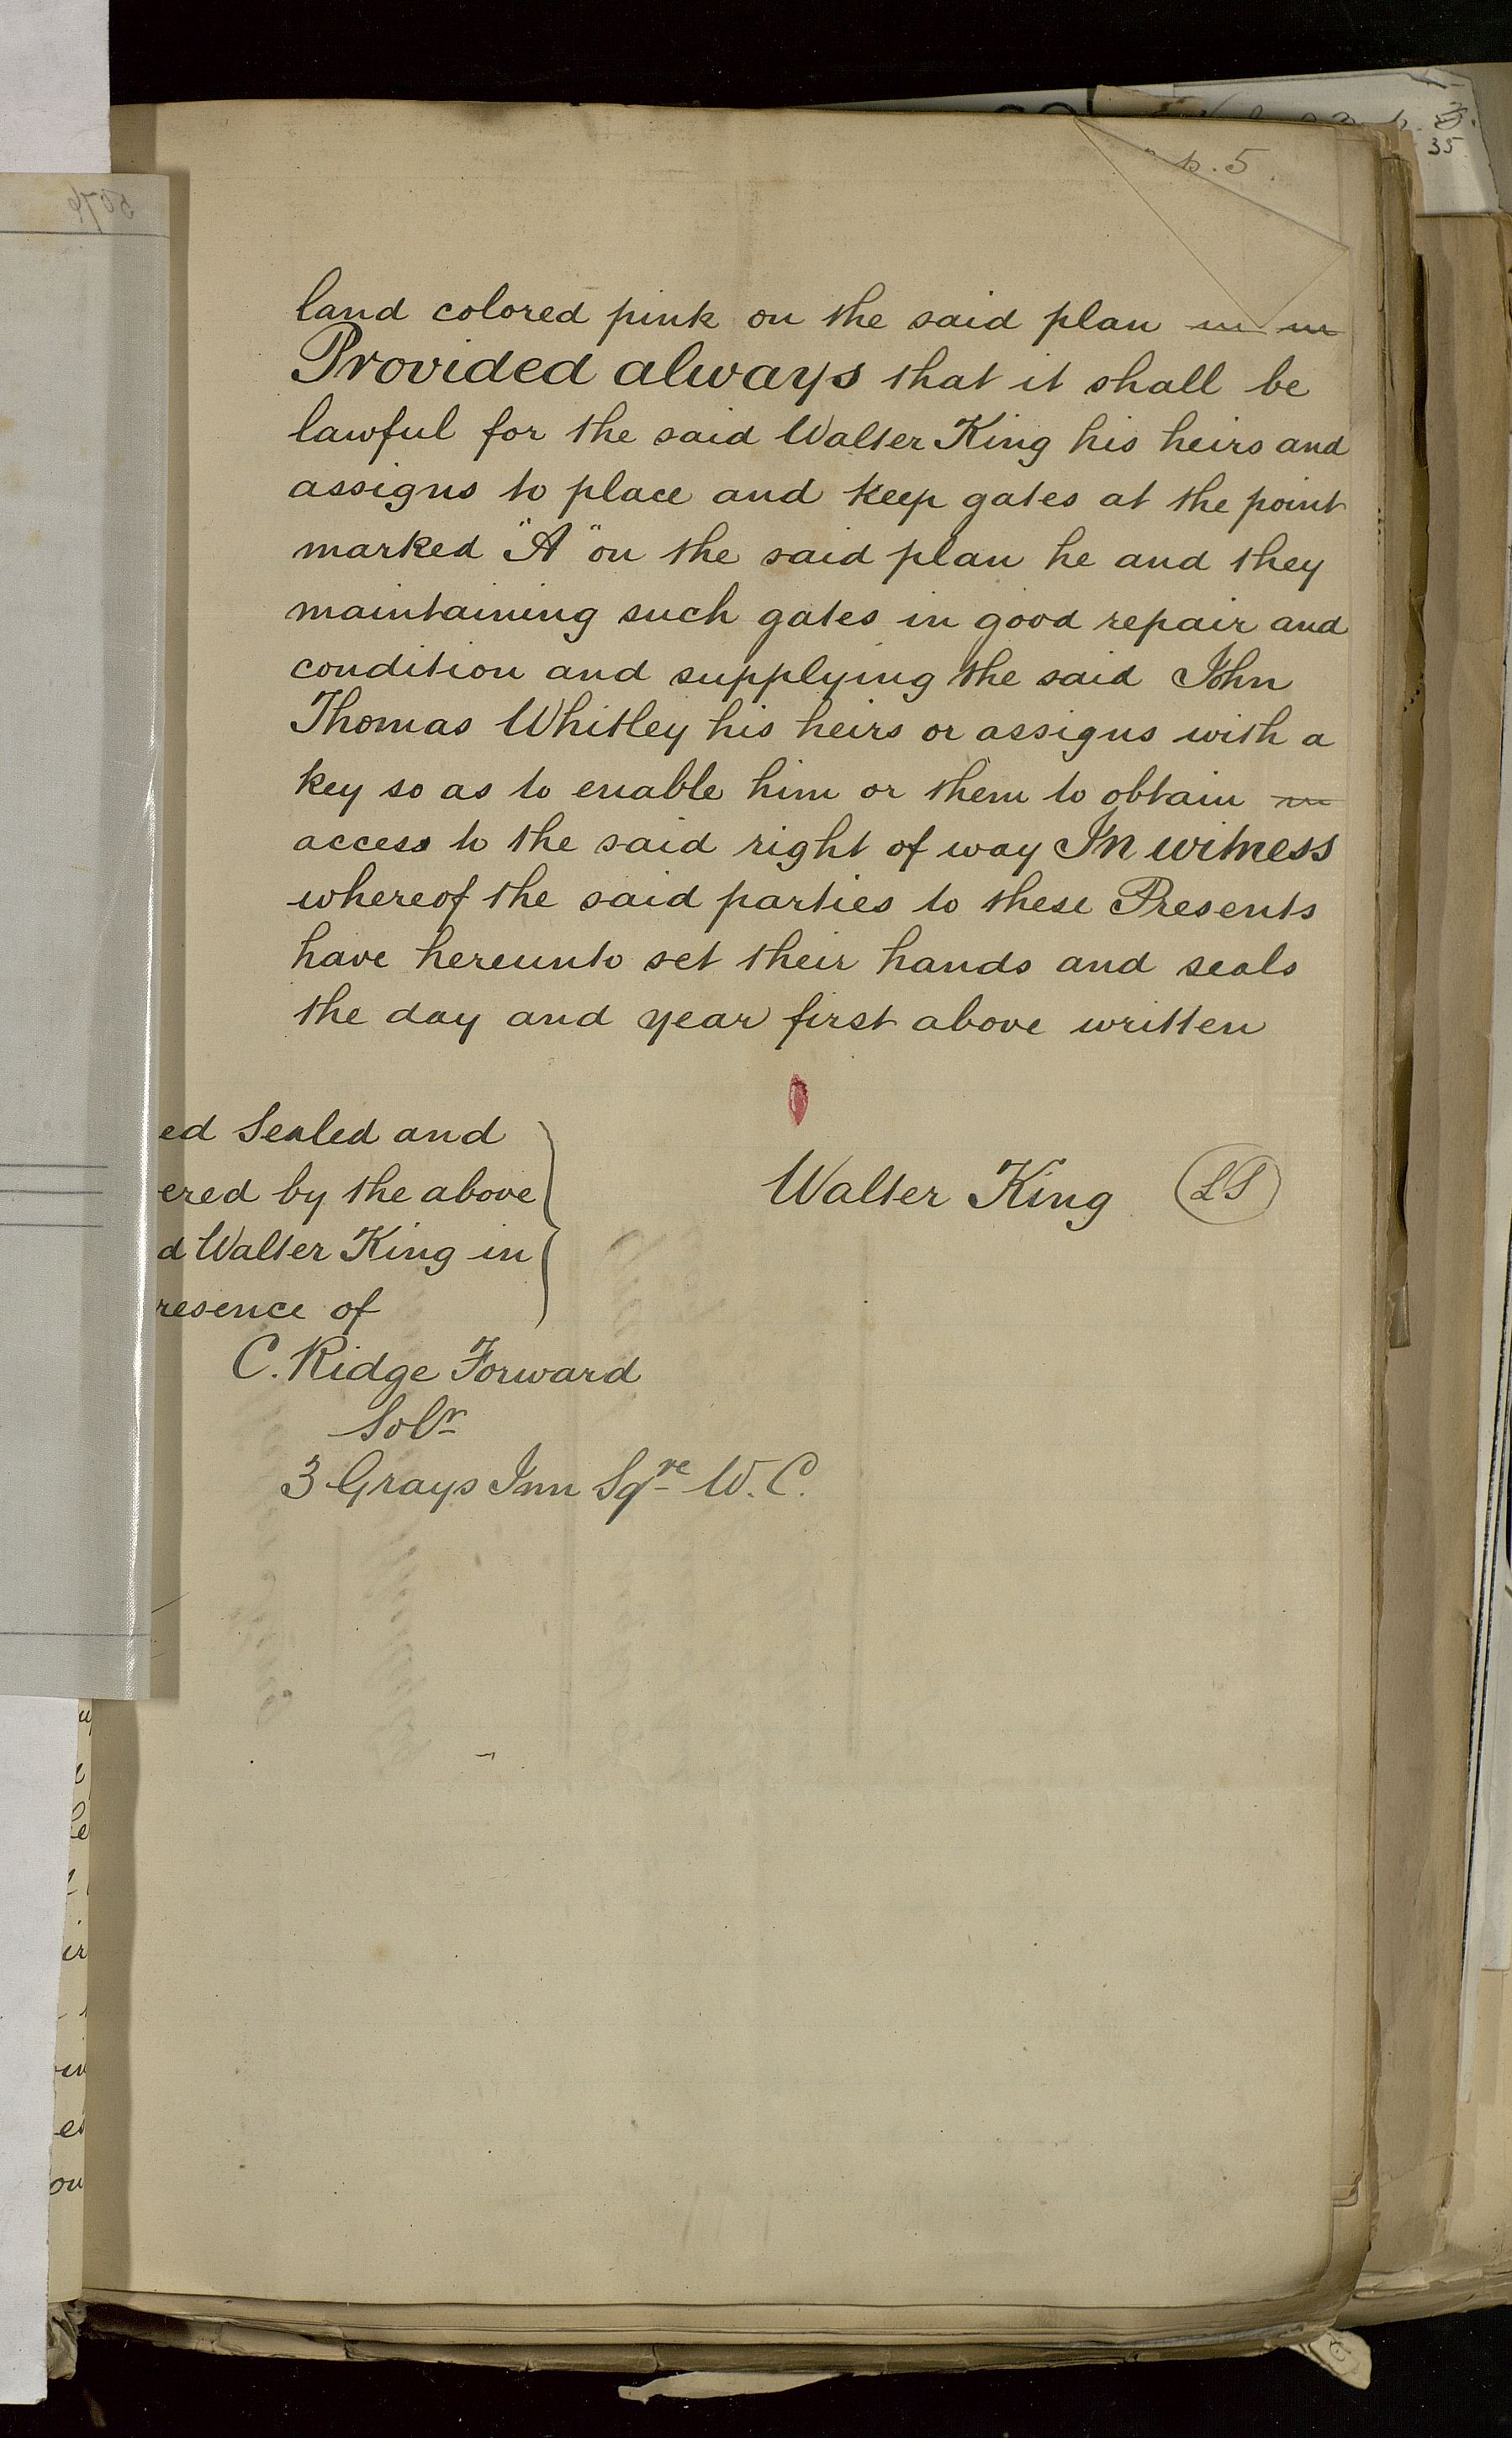 p. 5.
35
land colored pink on the said plan
Provided always that it shall be
lawful for the said Walter King his heirs and
assigns to place and keep gates at the point
marked "A" on the said plan he and they
maintaining such gates in good repair and
condition and supplying the said John
Thomas Whitley his heirs or assigns with a
key so as to enable him or them to obtain
access to the said right of way In witness
whereof the said parties to these Presents
have hereunto set their hands and seals
the day and year first above written
ed Sealed and
ered by the above
d Walter King in
resence of
Walter King LS
C. Ridge Forward
Solr
3 Grays Inn Sqre W.C.